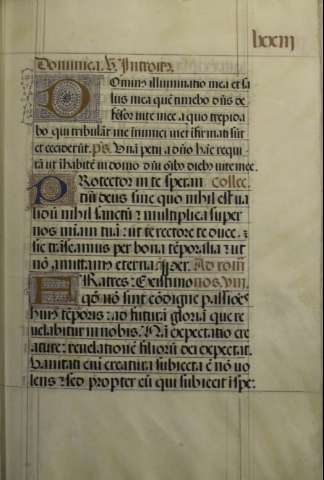 lxxiii
Dominica. V. Introit9.
Omin9 illuminatio mea et sa
lus mea quē timebo dn̄s de
fēsor uite mee a quo trepida
bo qui tribulāt me inimici mei ifirmati sūt
et ceciderūt. p̄s. Vnā petii a dn̄o hāc requi
rā ut ihabitē in domo dn̄i oīb9 dieb9 uite mee.
Rotector in te sperantium Collec.
tiū deus sine quo nihil est ua
lidū nihil sanctū ⁊ multiplica super
nos miam tuā: ut te rectore te duce, ⁊
sic trāseamus per bona tēporalia ⁊ ut
nō amittam9 eterna. per. Ad romā
Ratres: Existimo nos. VIII.
qō nō sint cōdigne passiōes
hui9 tēporis: ad futurā gloriā que re
uelabitur in nobis. Nā expectatio cre
ature: reuelationē filiorū dei expectat.
Vanitati eni creatura subiecta ē nō uo
lens: sed propter eū qui subiecit ī spe: